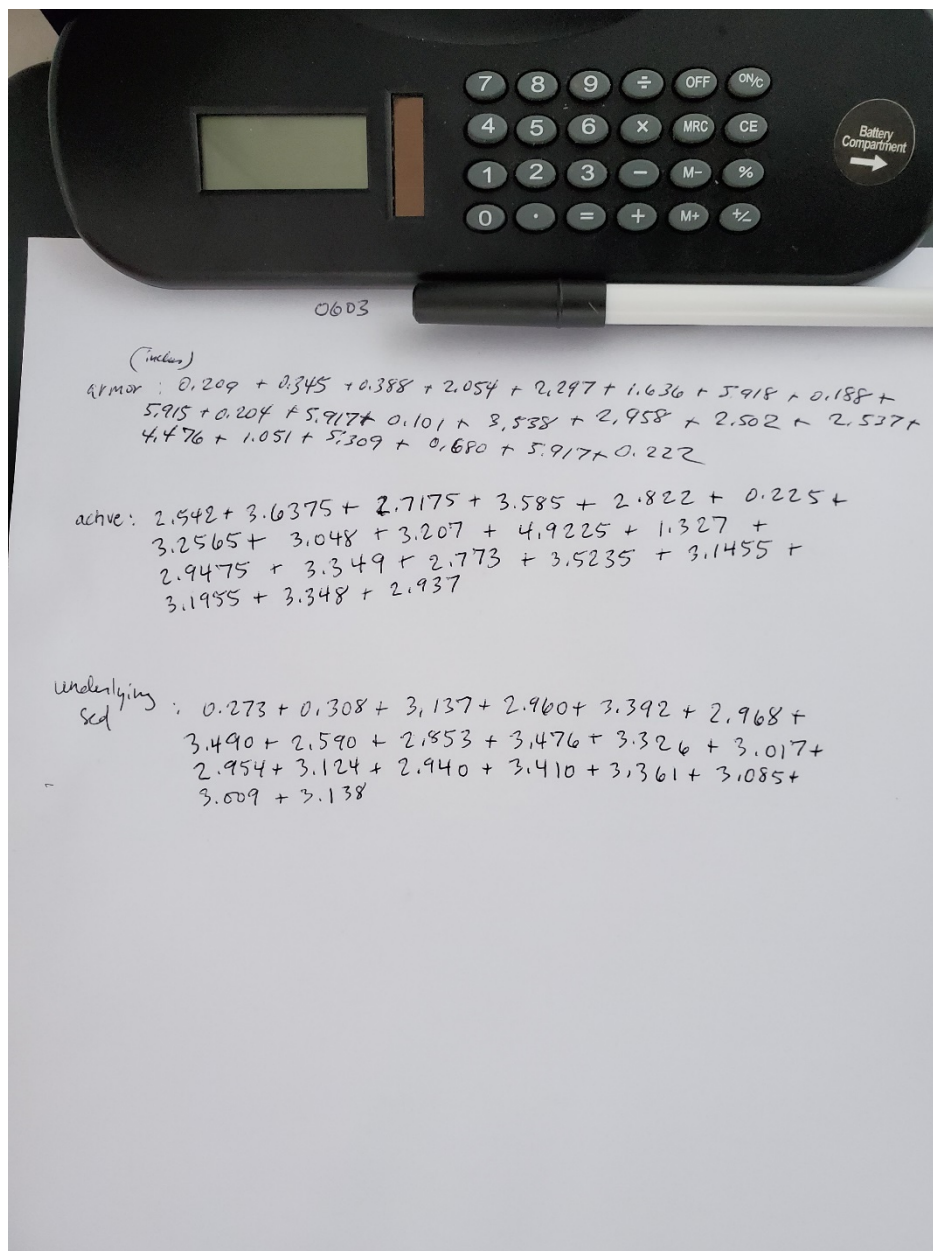 7 8 9 ÷ OFF ON/C
4 5 6 X MRC CE
1 2 3 − M- %
0 . = + M+ +/-
Battery
Compartment
0603
(inches)
armor : 0.209 + 0.345 + 0.388 + 2.054 + 2.297 + 1.636 + 5.918 + 0.188 +
5.915 + 0.204 + 5.917 + 0.101 + 3.538 + 2.958 + 2.502 + 2.537 +
4.476 + 1.051 + 5.309 + 0.680 + 5.917 + 0.222
active : 2.542 + 3.6375 + 2.7175 + 3.585 + 2.822 + 0.225 +
3.2565 + 3.048 + 3.207 + 4.9225 + 1.327 +
2.9475 + 3.349 + 2.773 + 3.5235 + 3.1455 +
3.1955 + 3.348 + 2.937
underlying
sed : 0.273 + 0.308 + 3.137 + 2.960 + 3.392 + 2.968 +
3.490 + 2.590 + 2.853 + 3.476 + 3.326 + 3.017 +
2.954 + 3.124 + 2.940 + 3.410 + 3.361 + 3.085 +
3.009 + 3.138